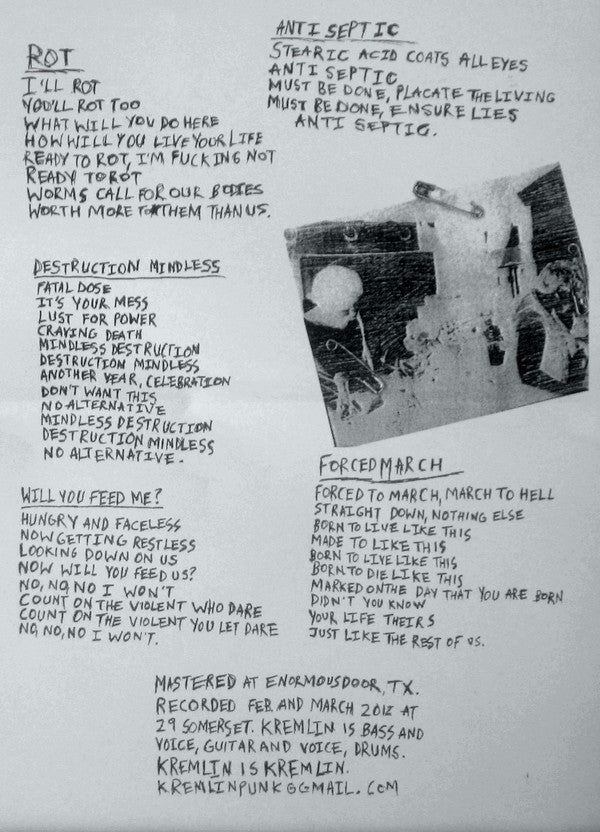 ROT
I'LL ROT
YOU'LL ROT TOO
WHAT WILL YOU DO HERE
HOW WILL YOU LIVE YOUR LIFE
READY TO ROT, I'M FUCKING NOT
READY TO ROT
WORMS CALL FOR OUR BODIES
WORTH MORE TO THEM THAN US.
ANTI SEPTIC
STEARIC ACID COATS ALL EYES
ANTI SEPTIC
MUST BE DONE, PLACATE THE LIVING
MUST BE DONE, ENSURE LIES
ANTI SEPTIC.
DESTRUCTION MINDLESS
FATAL DOSE
IT'S YOUR MESS
LUST FOR POWER
CRAVING DEATH
MINDLESS DESTRUCTION
DESTRUCTION MINDLESS
ANOTHER YEAR, CELEBRATION
DON'T WANT THIS
NO ALTERNATIVE
MINDLESS DESTRUCTION
DESTRUCTION MINDLESS
NO ALTERNATIVE.
WILL YOU FEED ME?
HUNGRY AND FACELESS
NOW GETTING RESTLESS
LOOKING DOWN ON US
NOW WILL YOU FEED US?
NO, NO, NO I WON'T
COUNT ON THE VIOLENT WHO DARE
COUNT ON THE VIOLENT YOU LET DARE
NO, NO, NO I WON'T.
FORCED MARCH
FORCED TO MARCH, MARCH TO HELL
STRAIGHT DOWN, NOTHING ELSE
BORN TO LIVE LIKE THIS
MADE TO LIKE THIS
BORN TO LIVE LIKE THIS
BORN TO DIE LIKE THIS
MARKED ON THE DAY THAT YOU ARE BORN
DIDN'T YOU KNOW
YOUR LIFE THEIRS
JUST LIKE THE REST OF US.
MASTERED AT ENORMOUSDOOR, TX.
RECORDED FEB. AND MARCH 2012 AT
29 SOMERSET. KREMLIN IS BASS AND
VOICE, GUITAR AND VOICE, DRUMS.
KREMLIN IS KREMLIN.
KREMLINPUNK@GMAIL.COM